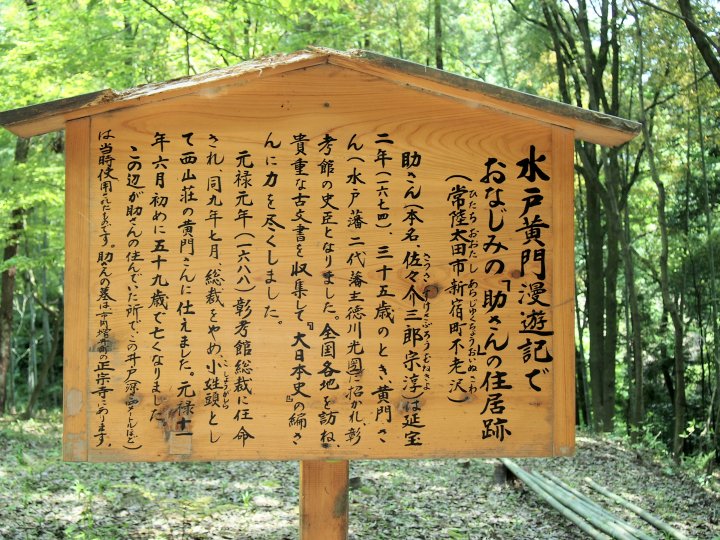 水戸黄門漫遊記で
おなじみの「助さん」の住居跡
ひたちおおたし あらじゅくちょうおいぬこわ
(常陸太田市新宿町不老沢)
さっさすけさぶろうむねきよ
助さん(本名、佐々介三郎宗淳)は延宝
二年(一六七四)、三十五歳のとき黄門さ
ん(水戸藩二代藩主徳川光圀)に招かれ、彰
考館の史臣となりました。全国各地を訪ね
貴重な古文書を収集して『大日本史』の編さ
んに力を尽くしました。
元禄元年(一六八八)彰考館総裁に任命
こしょうがしら
され、同九年七月、総裁をやめ、小姓頭とし
て西山荘の黄門さんに仕えました。元禄十一
年六月初めに五十九歳で亡くなりました。
この辺が助さんの住んでいた所でこの井戸(深、四メートルほど)
は当時使用されたものです。助さんの墓は の正宗寺にあります。